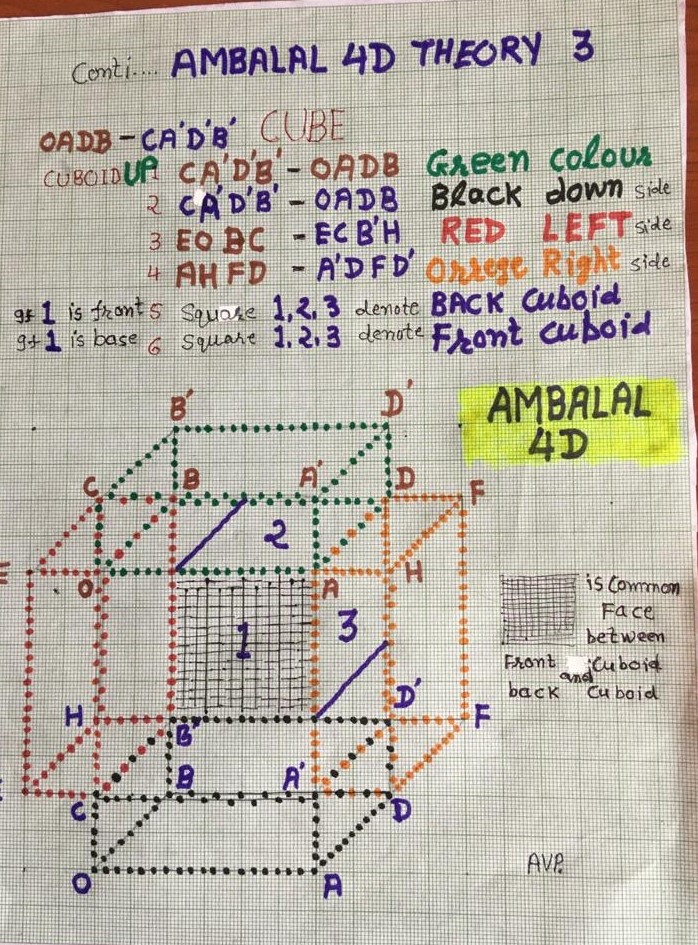 Conti.... AMBALAL 4D THEORY 3
OADB - CA'D'B' CUBE
CUBOID UP CA'D'B' - OADB Green colour
2 CA'D'B' - OADB Black down side
3 EOBC - ECB'H RED LEFT side
4 AHFD - A'DFD' Orrege Right side
gf 1 is front 5 Square 1,2,3 denote BACK Cuboid
gf 1 is base 6 Square 1,2,3 denote Front Cuboid
B' D'
AMBALAL
4D
C B A' D F
2
E O A H
is Common
Face
between
Front Cuboid
and
back Cuboid
1 3
H B' D' F
B A'
E C D
AVP.
O A